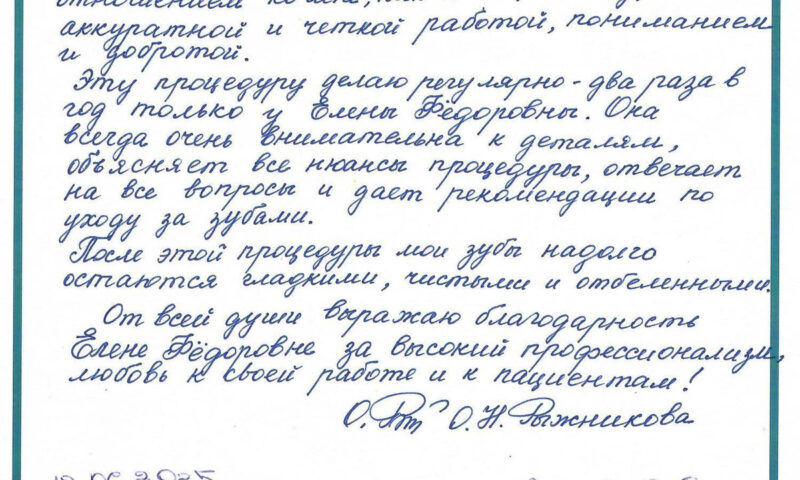 отношением ко мне,
аккуратной и четкой работой, пониманием
и добротой.
Эту процедуру делаю регулярно - два раза в
год только у Елены Фёдоровны. Она
всегда очень внимательна к деталям,
объясняет все нюансы процедуры, отвечает
на все вопросы и дает рекомендации по
уходу за зубами.
После этой процедуры мои зубы надолго
остаются гладкими, чистыми и отбеленными.
От всей души выражаю благодарность
Елене Фёдоровне за высокий профессионализм,
любовь к своей работе и к пациентам!
О. О.Н. Рыжникова